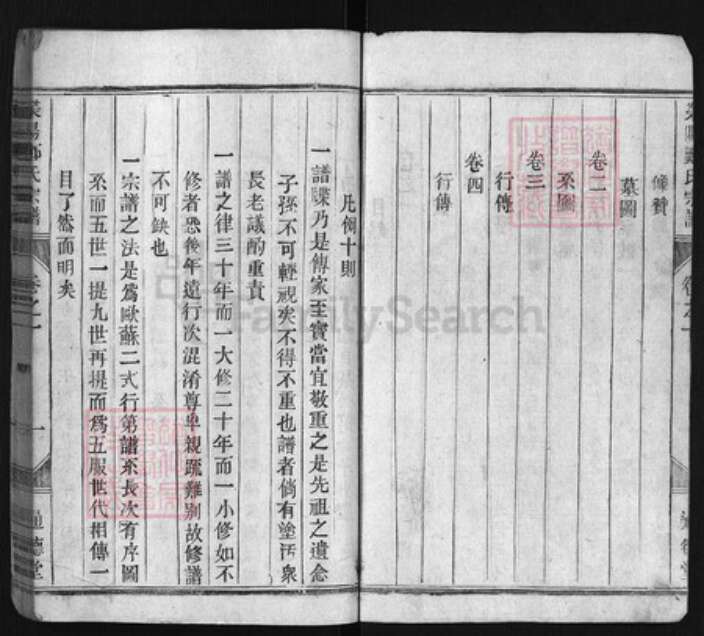 像贊
墓圖
卷二
系圖
卷三
行傳
卷四
行傳
凡例十則
一譜牒乃是傳家至寶當宜敬重之是先祖之遺念
子孫不可輕視矣不得不重也譜者倘有塗汚衆
長老議酌重責
一譜之律三十年而一大修二十年而一小修如不
修者恐後年遠行次混淆尊卑親疏難别故修譜
不可缺也
一宗譜之法是爲歐蘇二式行第譜系長次有序圖
系而五世一提九世再提而爲五服世代相傳一
目了然而明矣
氏宗譜
卷之一
一
道德堂
FamilySearch